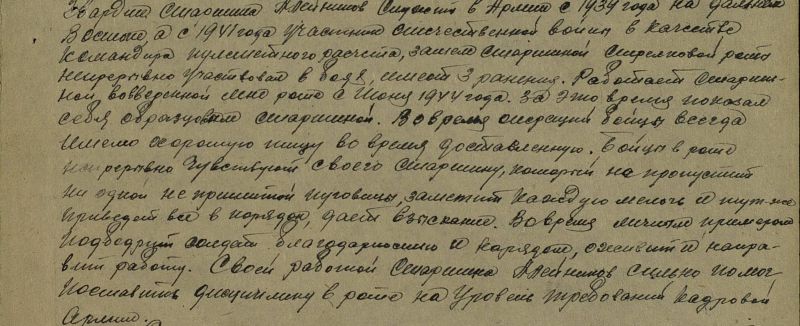 Гвардии старшина Алейников служит в Армии с 1939 года на дальнем
Востоке, а с 1941 года участник отечественной войны в качестве
командира пулеметного расчета, затем старшиной стрелковой роты
непрерывно участвовал в боях, имеет 3 ранения. Работает старши-
ной вверенной мне роте с Июня 1944 года. За это время показал
себя образцовым старшиной. Во время операций бойцы всегда
имели хорошую пищу во время доставленную. Бойцы в роте
непрерывно чувствуют своего старшину, который не пропустит
ни одной не пришитой пуговицы, заметит каждую мелочь и тут-же
приведет все в порядок, дает взыскание. Вовремя личным примером
солдат благодарностью и нарядом, оживит и напра-
вит работу. Своей работой старшина Алейников сильно помог
поставить дисциплину в роте на уровень требований кадровой
Армии.